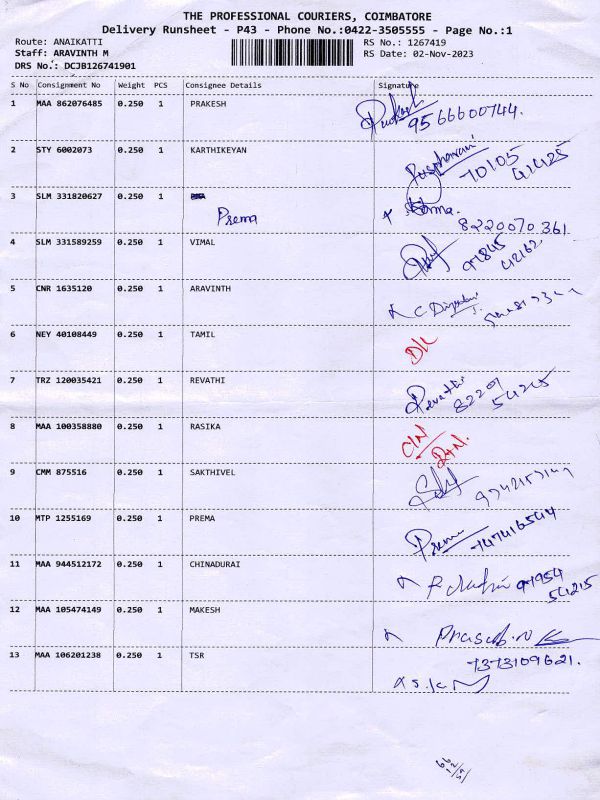 THE PROFESSIONAL COURIERS, COIMBATORE
Delivery Runsheet - P43 - Phone No.:0422-3505555 - Page No.:1
Route: ANAIKATTI RS No.: 1267419
Staff: ARAVINTH M RS Date: 02-Nov-2023
DRS No.: DCJB126741901
S No Consignment No Weight PCS Consignee Details Signature
1 MAA 862076485 0.250 1 PRAKESH 9566600744.
2 STY 6002073 0.250 1 KARTHIKEYAN 70105 41425
3 SLM 331820627 0.250 1
Prema 8220070361
4 SLM 331589259 0.250 1 VIMAL
5 CNR 1635120 0.250 1 ARAVINTH
6 NEY 40108449 0.250 1 TAMIL D/L
7 TRZ 120035421 0.250 1 REVATHI Revathi 82201 54215
8 MAA 100358880 0.250 1 RASIKA
9 CMM 875516 0.250 1 SAKTHIVEL
10 MTP 1255169 0.250 1 PREMA Prema
11 MAA 944512172 0.250 1 CHINADURAI
12 MAA 105474149 0.250 1 MAKESH
13 MAA 106201238 0.250 1 TSR 7373109621.